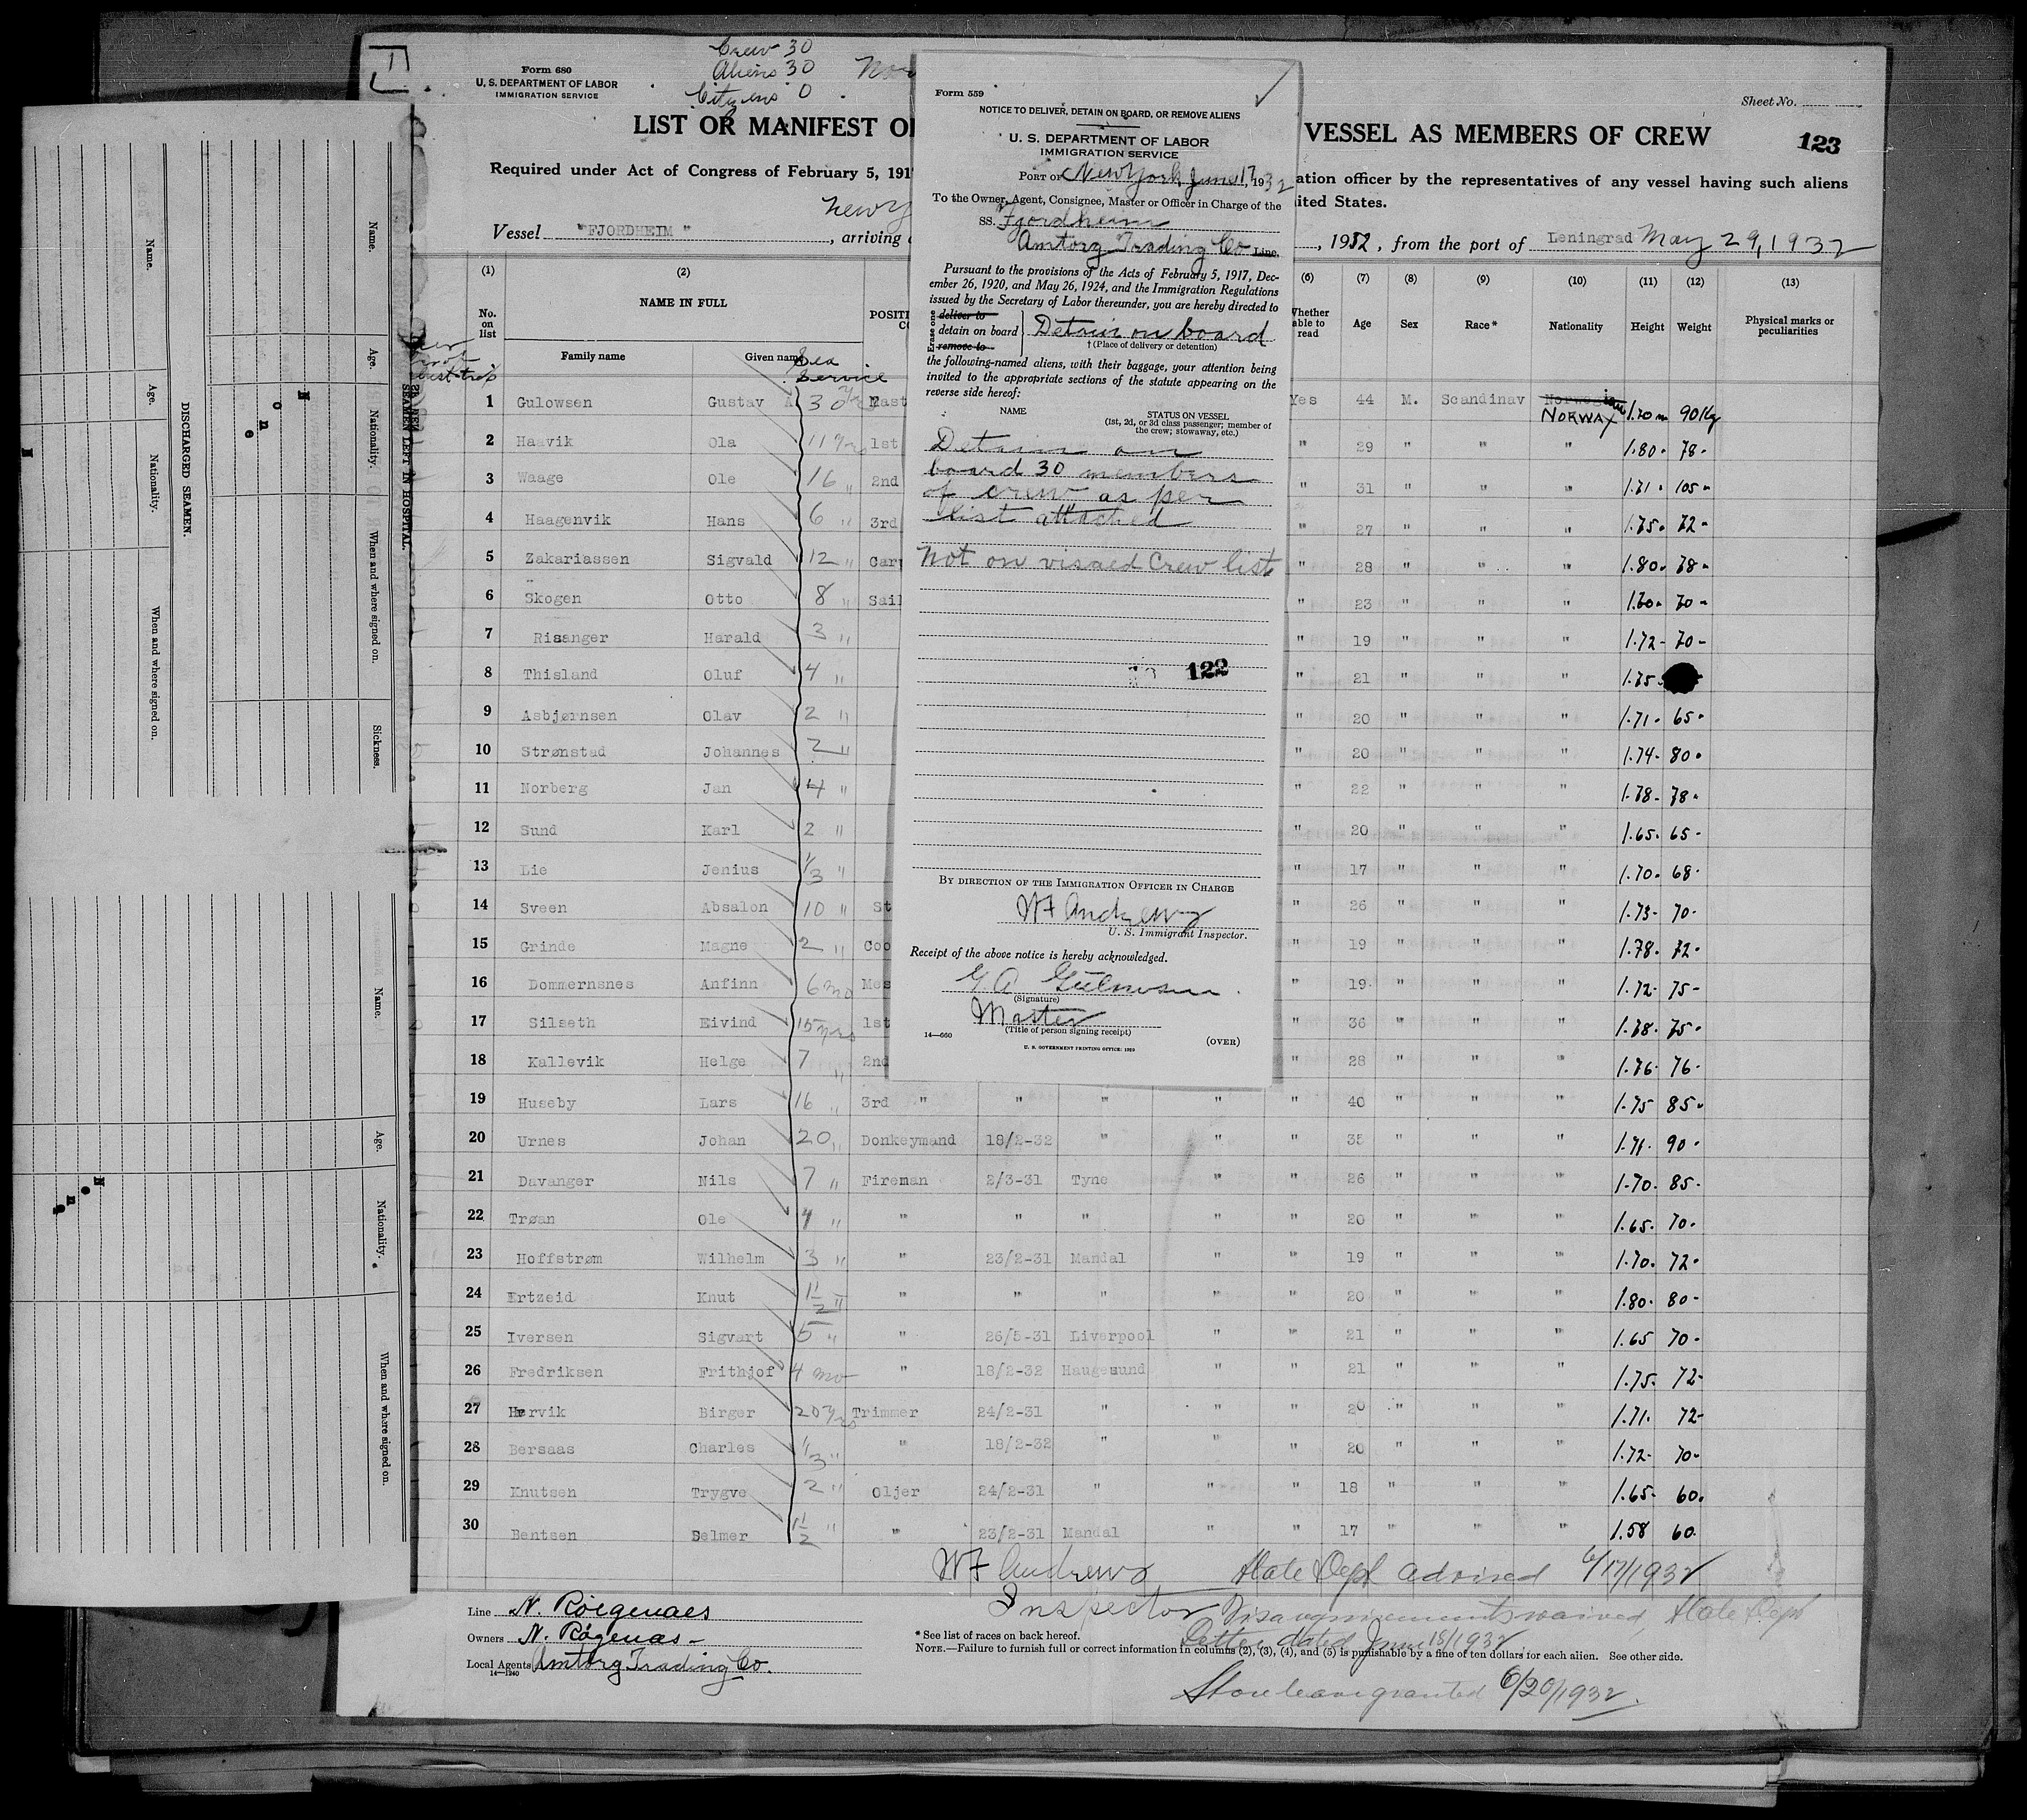 Crew 30
Aliens 30
Citizens 0
Form 680
U. S. DEPARTMENT OF LABOR
IMMIGRATION SERVICE
Sheet No.
LIST OR MANIFEST O
VESSEL AS MEMBERS OF CREW
123
Required under Act of Congress of February 5, 191
ation officer by the representatives of any vessel having such aliens
ited States.
Vessel "FJORDHEIM", arriving
, 1932, from the port of Leningrad May 29, 1932
(1) (2) (6) (7) (8) (9) (10) (11) (12) (13)
No. on list NAME IN FULL Whether able to read Age Sex Race* Nationality Height Weight Physical marks or peculiarities
Family name Given name Sea Service
1 Gulowsen Gustav A 30 yrs Mast Yes 44 M. Scandinav Norwegian NORWAY 1.70 m 90 Kg
2 Haavik Ola 11 yrs 1st " 29 " " " 1.80 78
3 Waage Ole 16 " 2nd " 31 " " " 1.71 105
4 Haagenvik Hans 6 " 3rd " 27 " " " 1.75 72
5 Zakariassen Sigvald 12 " Car " 28 " " " 1.80 78
6 Skogen Otto 8 " Sail " 23 " " " 1.70 70
7 Risanger Harald 3 " " 19 " " " 1.72 70
8 Thisland Oluf 4 " " 21 " " " 1.75
9 Asbjørnsen Olav 2 " " 20 " " " 1.71 65
10 Strønstad Johannes 2 " " 20 " " " 1.74 80
11 Norberg Jan 4 " " 22 " " " 1.78 78
12 Sund Karl 2 " " 20 " " " 1.65 65
13 Lie Jenius 1/3 " " 17 " " " 1.70 68
14 Sveen Absalon 10 " St " 26 " " " 1.73 70
15 Grinde Magne 2 " Coo " 19 " " " 1.78 72
16 Dommernsnes Anfinn 6 mo Mes " 19 " " " 1.72 75
17 Silseth Eivind 15 yrs 1st " 36 " " " 1.78 75
18 Kallevik Helge 7 " 2nd " 28 " " " 1.76 76
19 Huseby Lars 16 " 3rd " " " " " 40 " " " 1.75 85
20 Urnes Johan 20 " Donkeymand 18/2-32 " " " 35 " " " 1.71 90
21 Davanger Nils 7 " Fireman 2/3-31 Tyne " " 26 " " " 1.70 85
22 Trøan Ole 4 " " " " " " 20 " " " 1.65 70
23 Hoffstrøm Wilhelm 3 " " 23/2-31 Mandal " " 19 " " " 1.70 72
24 Ertzeid Knut 1 1/2 " " " " " " 20 " " " 1.80 80
25 Iversen Sigvart 5 " " 26/5-31 Liverpool " " 21 " " " 1.65 70
26 Fredriksen Frithjof 4 mo " 18/2-32 Haugesund " " 21 " " " 1.75 72
27 Hervik Birger 20 yrs Trimmer 24/2-31 " " " 20 " " " 1.71 72
28 Bersaas Charles 1/3 " " 18/2-32 " " " 20 " " " 1.72 70
29 Knutsen Trygve 2 " Oljer 24/2-31 " " " 18 " " " 1.65 60
30 Bentsen Selmer 1 1/2 " " 23/2-31 Mandal " " 17 " " " 1.58 60
WF Andrews State Dept advised 6/17/1932
Inspector Visa requirements waived, State Dept
Letter dated June 18/1932
Shore leave granted 6/20/1932.
Line
Owners
Local Agents Amtorg Trading Co.
14—1240
* See list of races on back hereof.
NOTE.—Failure to furnish full or correct information in columns (2), (3), (4), and (5) is punishable by a fine of ten dollars for each alien. See other side.
Form 559
NOTICE TO DELIVER, DETAIN ON BOARD, OR REMOVE ALIENS
U. S. DEPARTMENT OF LABOR
IMMIGRATION SERVICE
PORT OF New York June 17, 1932
To the Owner, Agent, Consignee, Master or Officer in Charge of the
SS. Fjordheim
Amtorg Trading Co Line.
Pursuant to the provisions of the Acts of February 5, 1917, Dec-
ember 26, 1920, and May 26, 1924, and the Immigration Regulations
issued by the Secretary of Labor thereunder, you are hereby directed to
Erase one
deliver to
detain on board
remove to
Detain on board
† (Place of delivery or detention)
the following-named aliens, with their baggage, your attention being
invited to the appropriate sections of the statute appearing on the
reverse side hereof:
NAME STATUS ON VESSEL
(1st, 2d, or 3d class passenger; member of
the crew; stowaway, etc.)
Detain on
board 30 members
of crew as per
list attached
Not on visaed Crew list
122
BY DIRECTION OF THE IMMIGRATION OFFICER IN CHARGE
WF Andrews
U. S. Immigrant Inspector.
Receipt of the above notice is hereby acknowledged.
(Signature)
Master
(Title of person signing receipt)
14—660
U. S. GOVERNMENT PRINTING OFFICE: 1929
(OVER)
SEAMEN LEFT IN HOSPITAL.
Name. Age. Nationality. When and where signed on. Sickness.
None
DISCHARGED SEAMEN.
Name. Age. Nationality. When and where signed on.
Name. Age. Nationality. When and where signed on.
None